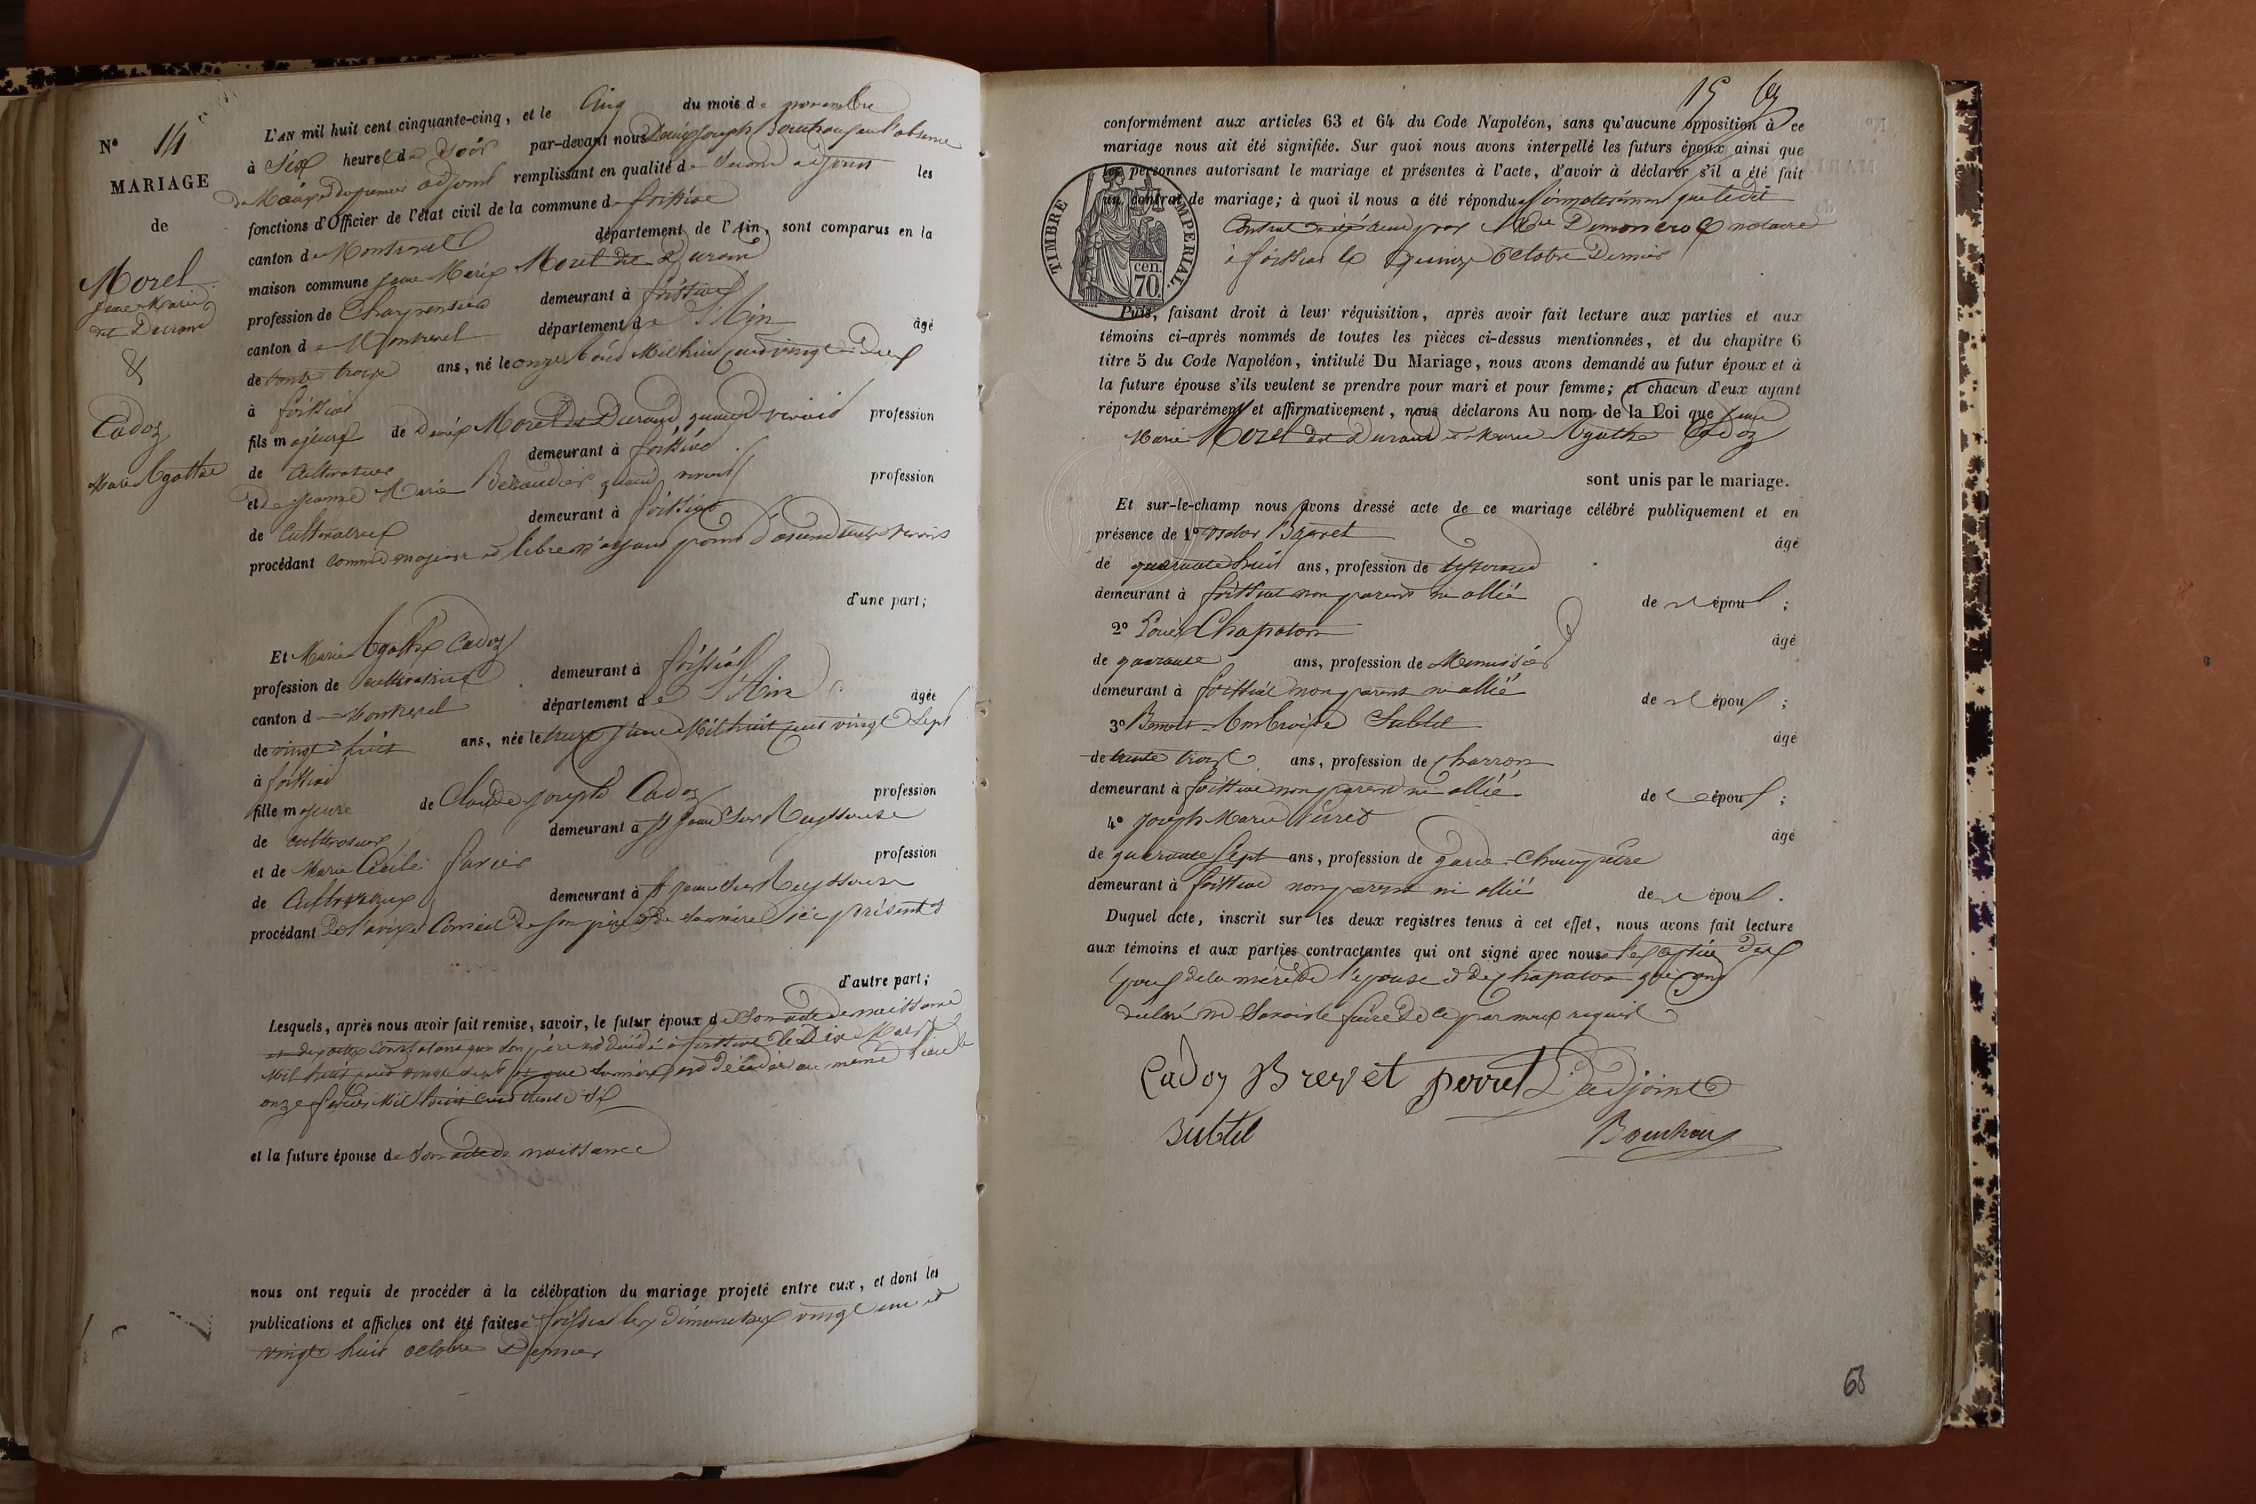 Nº 14
MARIAGE
de
Morel
Jean Marie
dit Durand
&
Cadoz
Marie Agathe
L'AN mil huit cent cinquante-cinq, et le Cinq du mois de novembre
à Six heures du Soir par-devant nous Denis Joseph Bouchoux en l'absence
du Maire et du premier adjoint remplissant en qualité de Second adjoint les
fonctions d'Officier de l'état civil de la commune de foissiat
canton de Montrevel département de l'Ain, sont comparus en la
maison commune Jean Marie Morel dit Durand
profession de Charpentier demeurant à foissiat
canton de Montrevel département de l'Ain âgé
de trente trois ans, né le onze Mil huit cent vingt deux
à foissiat
fils majeur de Denis Morel dit Durand quand vivait profession
de Cultivateur demeurant à foissiat
et de Jeanne Marie quand vivait profession
de Cultivatrice demeurant à foissiat
procédant comme majeur et libre n'ayant point d'ascendants vivants
d'une part;
Et Marie Agathe Cadoz
profession de cultivatrice demeurant à foissiat
canton de Montrevel département de l'Ain âgée
de vingt huit ans, née le Mil huit cent vingt sept
à foissiat
fille majeure de Claude Joseph Cadoz profession
de cultivateur demeurant à St Jean Sur Reyssouse
et de Marie Cécile profession
de Cultivatrice demeurant à St Jean Sur Reyssouse
procédant de l'avis et Conseil de son père et de sa mère ici présents
d'autre part;
Lesquels, après nous avoir fait remise, savoir, le futur époux de Son acte de naissance
et des actes constatant que son père est décédé à foissiat le Dix Mars
Mil huit cent vingt sept et que sa mère est décédée au même lieu le
onze février Mil huit cent trente six
et la future épouse de Son acte de naissance
nous ont requis de procéder à la célébration du mariage projeté entre eux, et dont les
publications et affiches ont été faites à foissiat les Dimanches vingt un et
vingt huit octobre Dernier
15
conformément aux articles 63 et 64 du Code Napoléon, sans qu'aucune opposition à ce
mariage nous ait été signifiée. Sur quoi nous avons interpellé les futurs époux ainsi que
les personnes autorisant le mariage et présentes à l'acte, d'avoir à déclarer s'il a été fait
un contrat de mariage; à quoi il nous a été répondu affirmativement que ledit
Contrat a été reçu par Me notaire
à foissiat le quinze octobre Dernier
TIMBRE IMPERIAL.
70 cen.
Puis, faisant droit à leur réquisition, après avoir fait lecture aux parties et aux
témoins ci-après nommés de toutes les pièces ci-dessus mentionnées, et du chapitre 6
titre 5 du Code Napoléon, intitulé Du Mariage, nous avons demandé au futur époux et à
la future épouse s'ils veulent se prendre pour mari et pour femme; et chacun d'eux ayant
répondu séparément et affirmativement, nous déclarons Au nom de la Loi que Jean
Marie Morel dit Durand et Marie Agathe Cadoz
sont unis par le mariage.
Et sur-le-champ nous avons dressé acte de ce mariage célébré publiquement et en
présence de 1º âgé
de quarante huit ans, profession de tisserand
demeurant à foissiat non parent ni allié des époux;
2º Louis Chapaton âgé
de quarante ans, profession de Menuisier
demeurant à foissiat non parent ni allié des époux;
3º Benoit Ambroise Subtil âgé
de trente trois ans, profession de charron
demeurant à foissiat non parent ni allié des époux;
4º Joseph Marie Perret âgé
de quarante sept ans, profession de garde-Champêtre
demeurant à foissiat non parent ni allié des époux.
Duquel acte, inscrit sur les deux registres tenus à cet effet, nous avons fait lecture
aux témoins et aux parties contractantes qui ont signé avec nous à l'exception des
époux de la mère de l'épouse et de Chapaton qui ont
déclaré ne Savoir le faire de ce par nous requis
Cadoz Brevet perret L'adjoint
Subtil Bouchoux
68